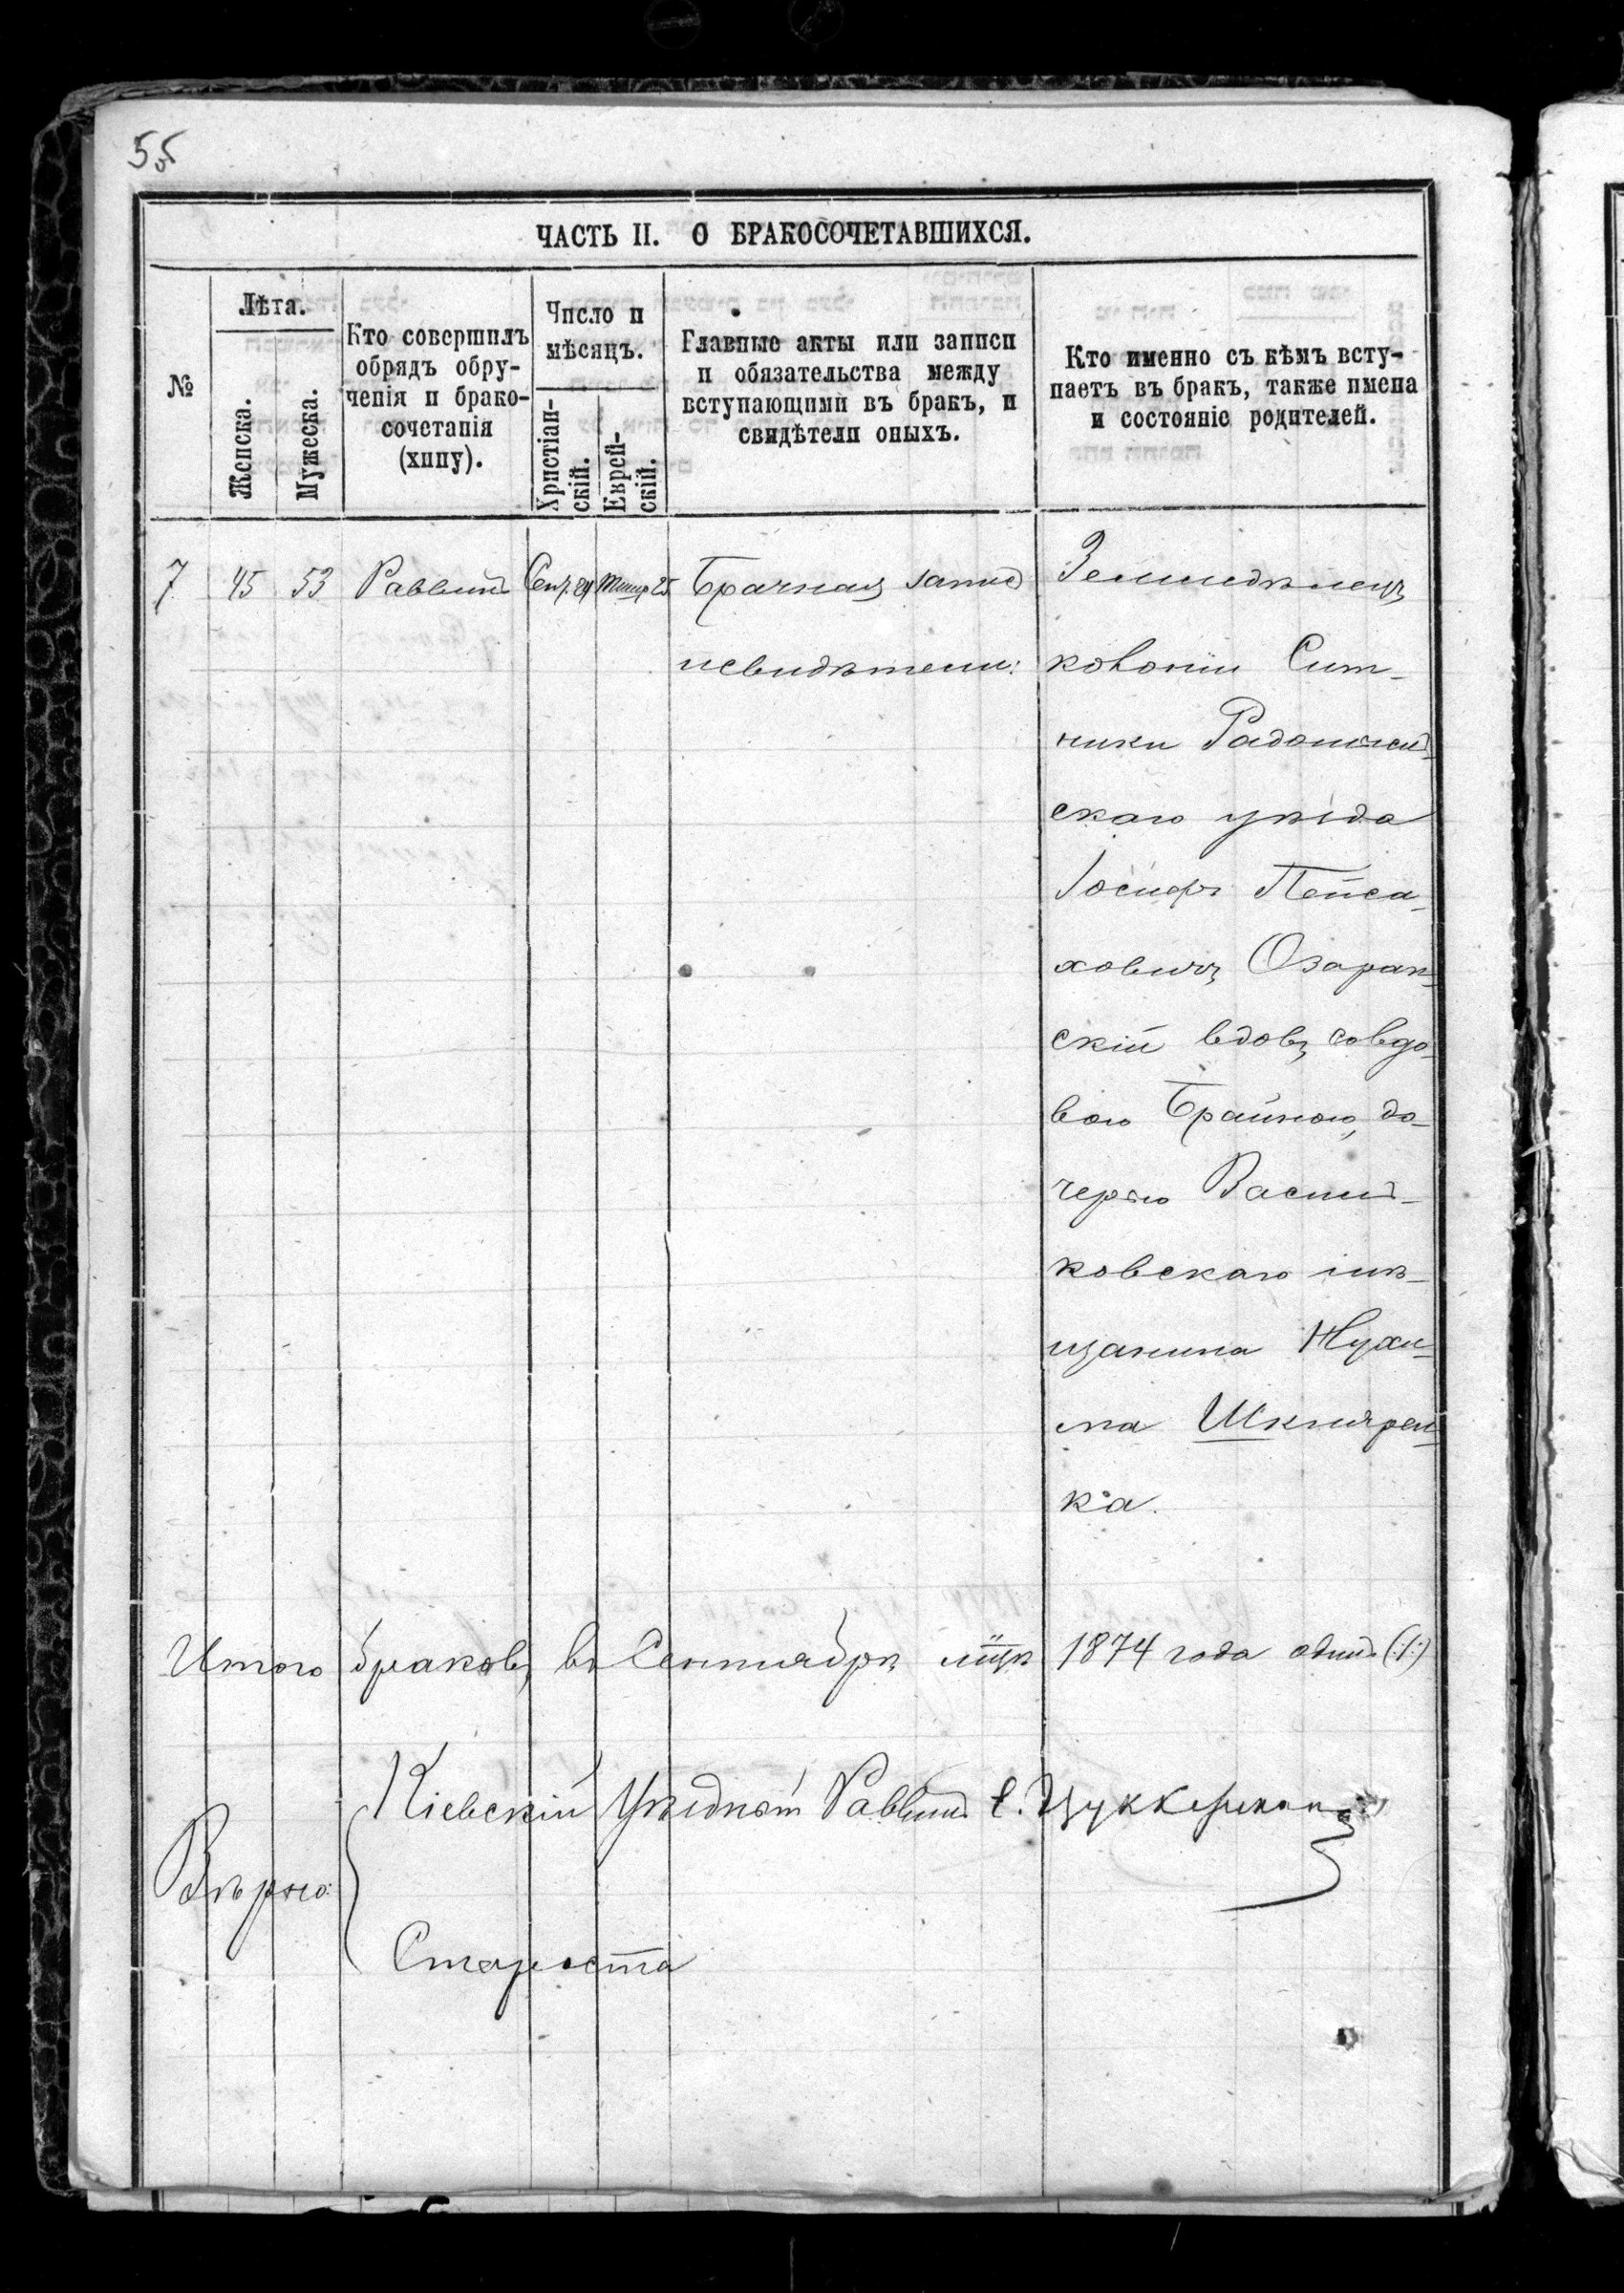 55
ЧАСТЬ II. О БРАКОСОЧЕТАВШИХСЯ.
№
Лѣта.
Женска.
Мужеска.
Кто совершилъ
обрядъ обру-
ченія и брако-
сочетанія
(хипу).
Число и
мѣсяцъ.
Христіан-
скій.
Еврей-
скій.
Главные акты или записи
и обязательства между
вступающими въ бракъ, и
свидѣтели оныхъ.
Кто именно съ кѣмъ всту-
паетъ въ бракъ, также имена
и состояніе родителей.
7 45 53 Раввинъ Сент. Тишр 25 Брачная запись Земледѣлецъ
и свидѣтели: колоніи Сит-
няки Радомысль-
скаго уѣзда
Іосифъ Пейса-
ховичъ Озарян-
скій вдовъ со вдо-
вою Брайною, до-
черью Василь-
ковскаго мѣ-
щанина Нухи-
ма Шкляре-
ка.
Итого браковъ въ Сентябрѣ мцѣ 1874 года одинъ (:1:)
Кіевскій Уѣздный Раввинъ Е. Цуккерманъ
Вѣрно:
Староста